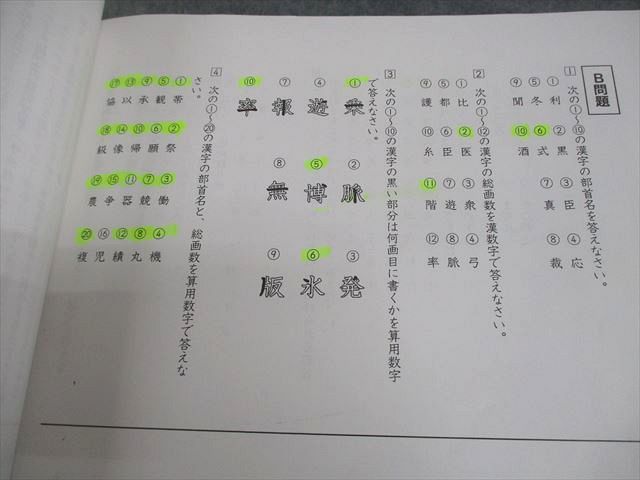 B問題
1 次の①~⑩の漢字の部首名を答えなさい。
①利 ②黒 ③臣 ④応
⑤冬 ⑥式 ⑦真 ⑧裁
⑨聞 ⑩酒
2 次の①~⑫の漢字の総画数を漢数字で答えなさい。
①比 ②医 ③衆 ④弓
⑤都 ⑥臣 ⑦遊 ⑧脈
⑨護 ⑩糸 ⑪階 ⑫率
3 次の①~⑩の漢字の黒い部分は何画目に書くかを算用数字
で答えなさい。
①乗 ②脈 ③発
④遊 ⑤博 ⑥氷
⑦報 ⑧無 ⑨版
⑩率
4 次の①~⑳の漢字の部首名と、総画数を算用数字で答えな
さい。
①帯 ②祭 ③働 ④機
⑤観 ⑥願 ⑦競 ⑧丸
⑨承 ⑩帰 ⑪器 ⑫績
⑬以 ⑭像 ⑮争 ⑯児
⑰協 ⑱級 ⑲農 ⑳複